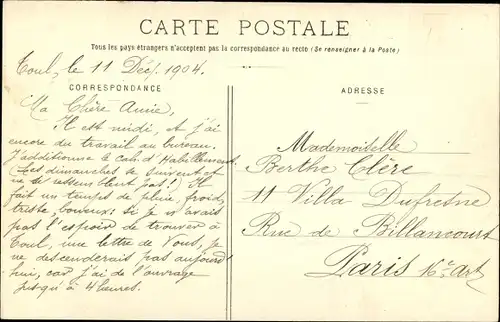 CARTE POSTALE
Tous les pays étrangers n'acceptent pas la correspondance au recto (Se renseigner à la Poste)
Toul, le 11 Déc. 1904.
CORRESPONDANCE
Ma Chère Amie,
Il est midi, et j'ai
encore du travail au bureau.
J'additionne le cah. d'Habillement.
(Les dimanches se suivent et
ne se ressemblent pas!) Il
fait un temps de pluie, froid,
triste, boueux. Si je n'avais
pas l'espoir de trouver à
Toul, une lettre de Vous, je
ne descenderais pas aujourd'
hui, car j'ai de l'ouvrage
jusqu'à 4 heures.
ADRESSE
Mademoiselle
Berthe Clère
11 Villa Dufresne
Rue de Billancourt
Paris 16e art